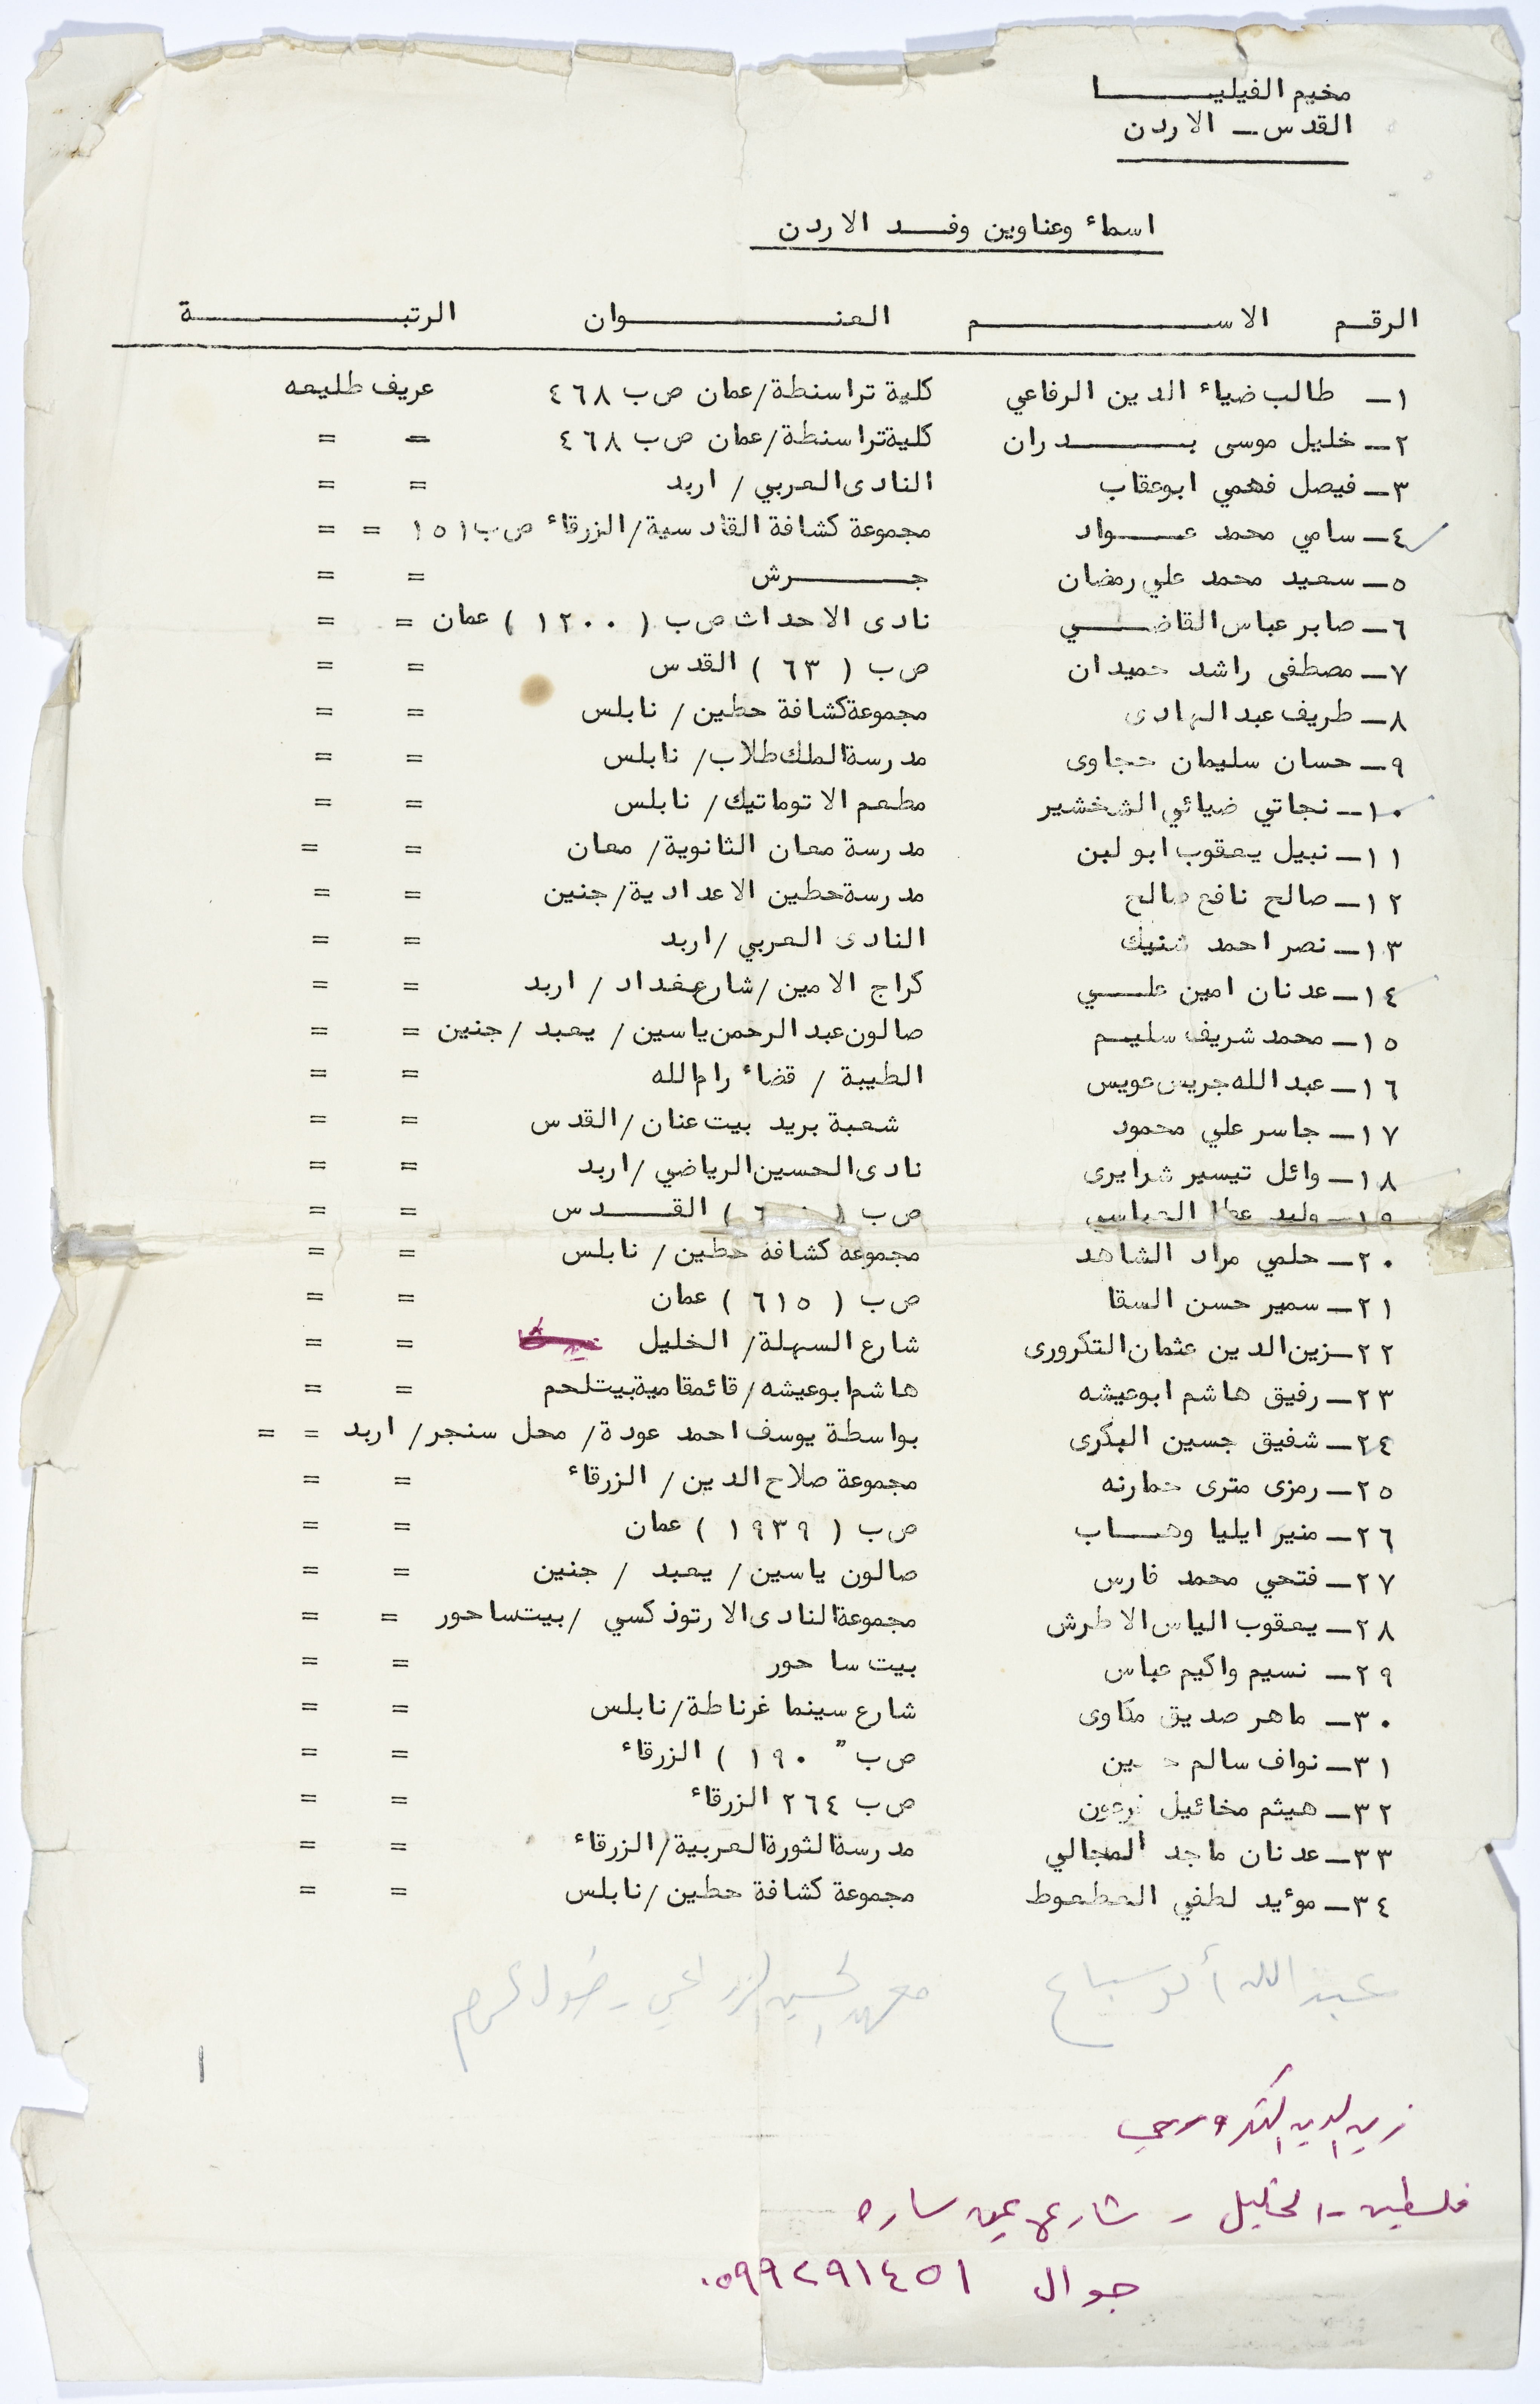 مخيم الفيليا
القدس ــ الاردن
اسماء وعناوين وفد الاردن
الرقم الاسم العنوان الرتبة
١ــ طالب ضياء الدين الرفاعي كلية تراسنطة/عمان ص ب ٤٦٨ عريف طليعه
٢ــ خليل موسى بدران كلية تراسنطة/عمان ص ب ٤٦٨ = =
٣ــ فيصل فهمي ابوعقاب النادى العربي / اربد = =
٤ــ سامي محمد عواد مجموعة كشافة القادسية/الزرقاء ص ب ١٥١ = =
٥ــ سعيد محمد علي رمضان جرش = =
٦ــ صابر عباس القاضي نادى الاحداث ص ب ( ١٢٠٠ ) عمان = =
٧ــ مصطفى راشد حميدان ص ب ( ٦٣ ) القدس = =
٨ــ طريف عبد الهادى مجموعة كشافة حطين / نابلس = =
٩ــ حسان سليمان حجاوى مدرسة الملك طلاب/ نابلس = =
١٠ــ نجاتي ضيائي الشخشير مطعم الاتوماتيك/ نابلس = =
١١ــ نبيل يعقوب ابو لبن مدرسة معان الثانوية/ معان = =
١٢ــ صالح نافع صالح مدرسة حطين الاعدادية/جنين = =
١٣ــ نصر احمد شنيك النادى العربي /اربد = =
١٤ــ عدنان امين علي كراج الامين /شارع بغداد / اربد = =
١٥ــ محمد شريف سليم صالون عبد الرحمن ياسين/ يعبد /جنين = =
١٦ــ عبد الله جريس عويس الطيبة / قضاء رام الله = =
١٧ــ جاسر علي محمود شعبة بريد بيت عنان /القدس = =
١٨ــ وائل تيسير شرايرى نادى الحسين الرياضي /اربد = =
١٩ــ وليد عطا العباسي ص ب ( ) القدس = =
٢٠ــ حلمي مراد الشاهد مجموعة كشافة حطين / نابلس = =
٢١ــ سمير حسن السقا ص ب ( ٦١٥ ) عمان = =
٢٢ــ زين الدين عثمان التكرورى شارع السهلة/ الخليل = =
٢٣ــ رفيق هاشم ابوعيشه هاشم ابوعيشه/قائمقامية بيت لحم = =
٢٤ــ شفيق جسين البكرى بواسطة يوسف احمد عودة/ محل سنجر/ اربد = =
٢٥ــ رمزى مترى حمارنه مجموعة صلاح الدين/ الزرقاء = =
٢٦ــ منير ايليا وهاب ص ب ( ١٩٣٩ ) عمان = =
٢٧ــ فتحي محمد فارس صالون ياسين/ يعبد / جنين = =
٢٨ــ يعقوب الياس الاطرش مجموعة النادى الارتوذكسي /بيت ساحور = =
٢٩ــ نسيم واكيم عباس بيت سا حور = =
٣٠ــ ماهر صديق مكاوى شارع سينما غرناطة/نابلس = =
٣١ــ نواف سالم ص ب " ١٩٠ ) الزرقاء = =
٣٢ــ هيثم مخائيل ص ب ٢٦٤ الزرقاء = =
٣٣ــ عدنان ماجد المجالي مدرسة الثورة العربية/الزرقاء = =
٣٤ــ موءيد لطفي العطعوط مجموعة كشافة حطين /نابلس = =
عبد الله أبو سباع معهد الحسين الزراعي ـ طولكرم
زين الدين التكروري
فلسطين ـ الخليل ـ شارع عين ساره
جوال ٠٥٩٩٢٩١٤٥١